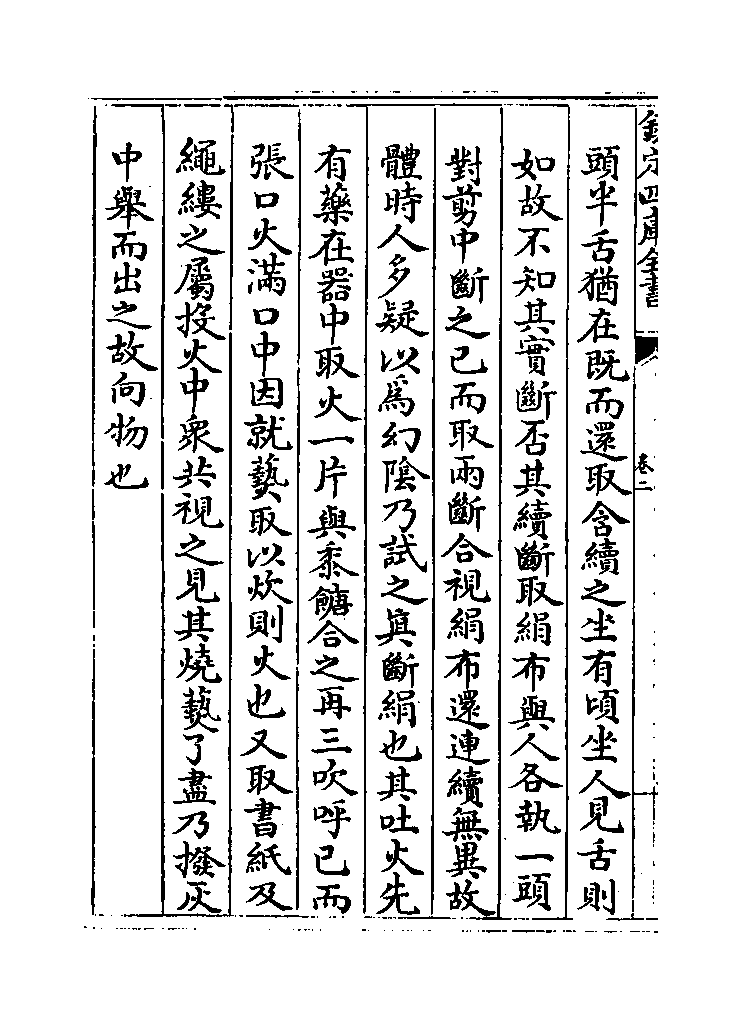 欽定四庫全書
卷二
頭半舌猶在既而還取含續之坐有頃坐人見舌則
如故不知其實斷否其續斷取絹布與人各執一頭
對剪中斷之已而取兩斷合視絹布還連續無異故
體時人多疑以為幻陰乃試之真斷絹也其吐火先
有藥在器中取火一片與黍䊗合之再三吹呼已而
張口火滿口中因就爇取以炊則火也又取書紙及
繩縷之屬投火中衆共視之見其燒爇了盡乃撥灰
中舉而出之故向物也